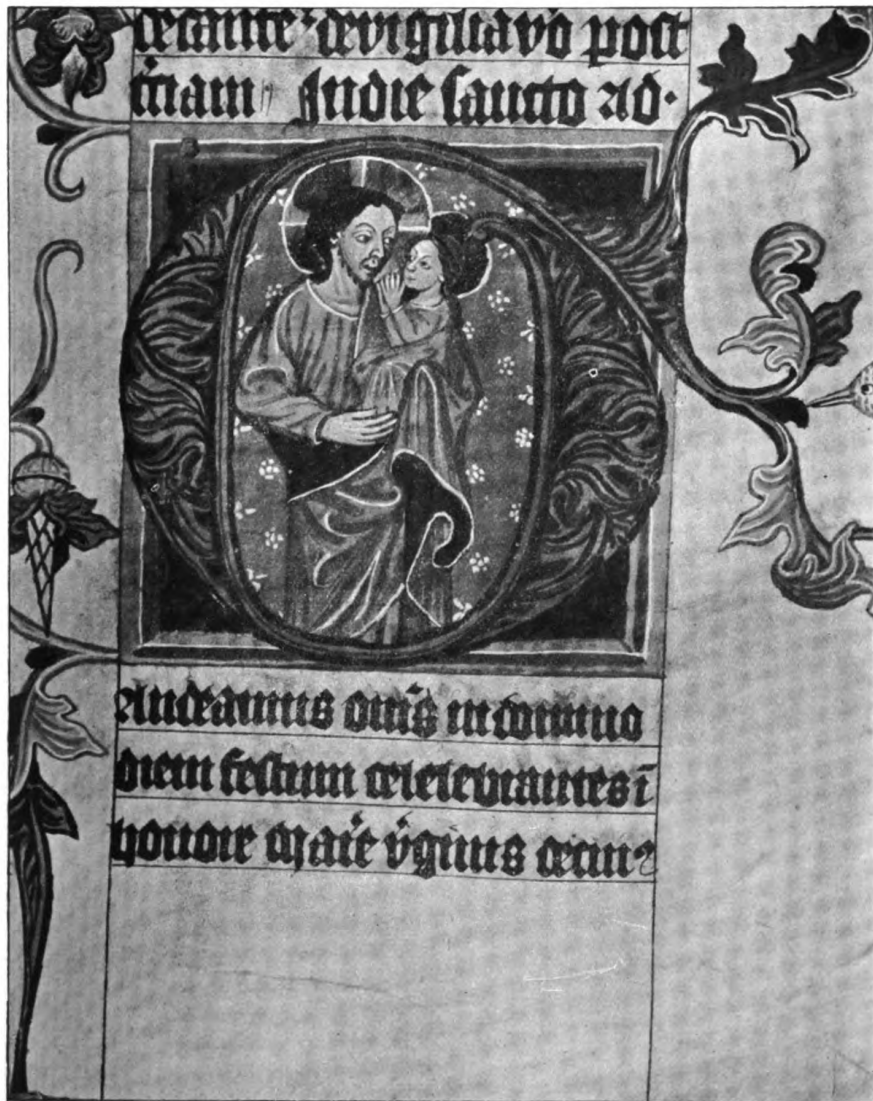 decante² de vigilia v̄o post
t̄ciam In die sancto ad·
audeamus om̄s in domino
diem festum celelebrantes ī
honore Mar̄ie v̄ginis de cuiꝰ